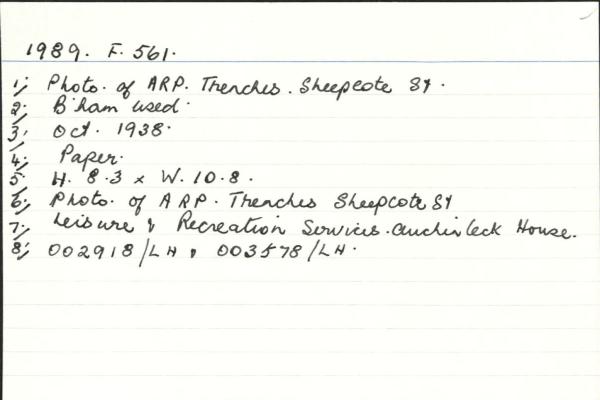 1989. F. 561.
1; Photo. of ARP. Trenches. Sheepcote St.
2; B'ham used.
3; Oct. 1938.
4; Paper.
5; H. 8.3 x W. 10.8.
6; Photo. of ARP. Trenches Sheepcote St
7; Leisure & Recreation Services. Auchinleck House.
8; 002918/LH, 003578/LH.